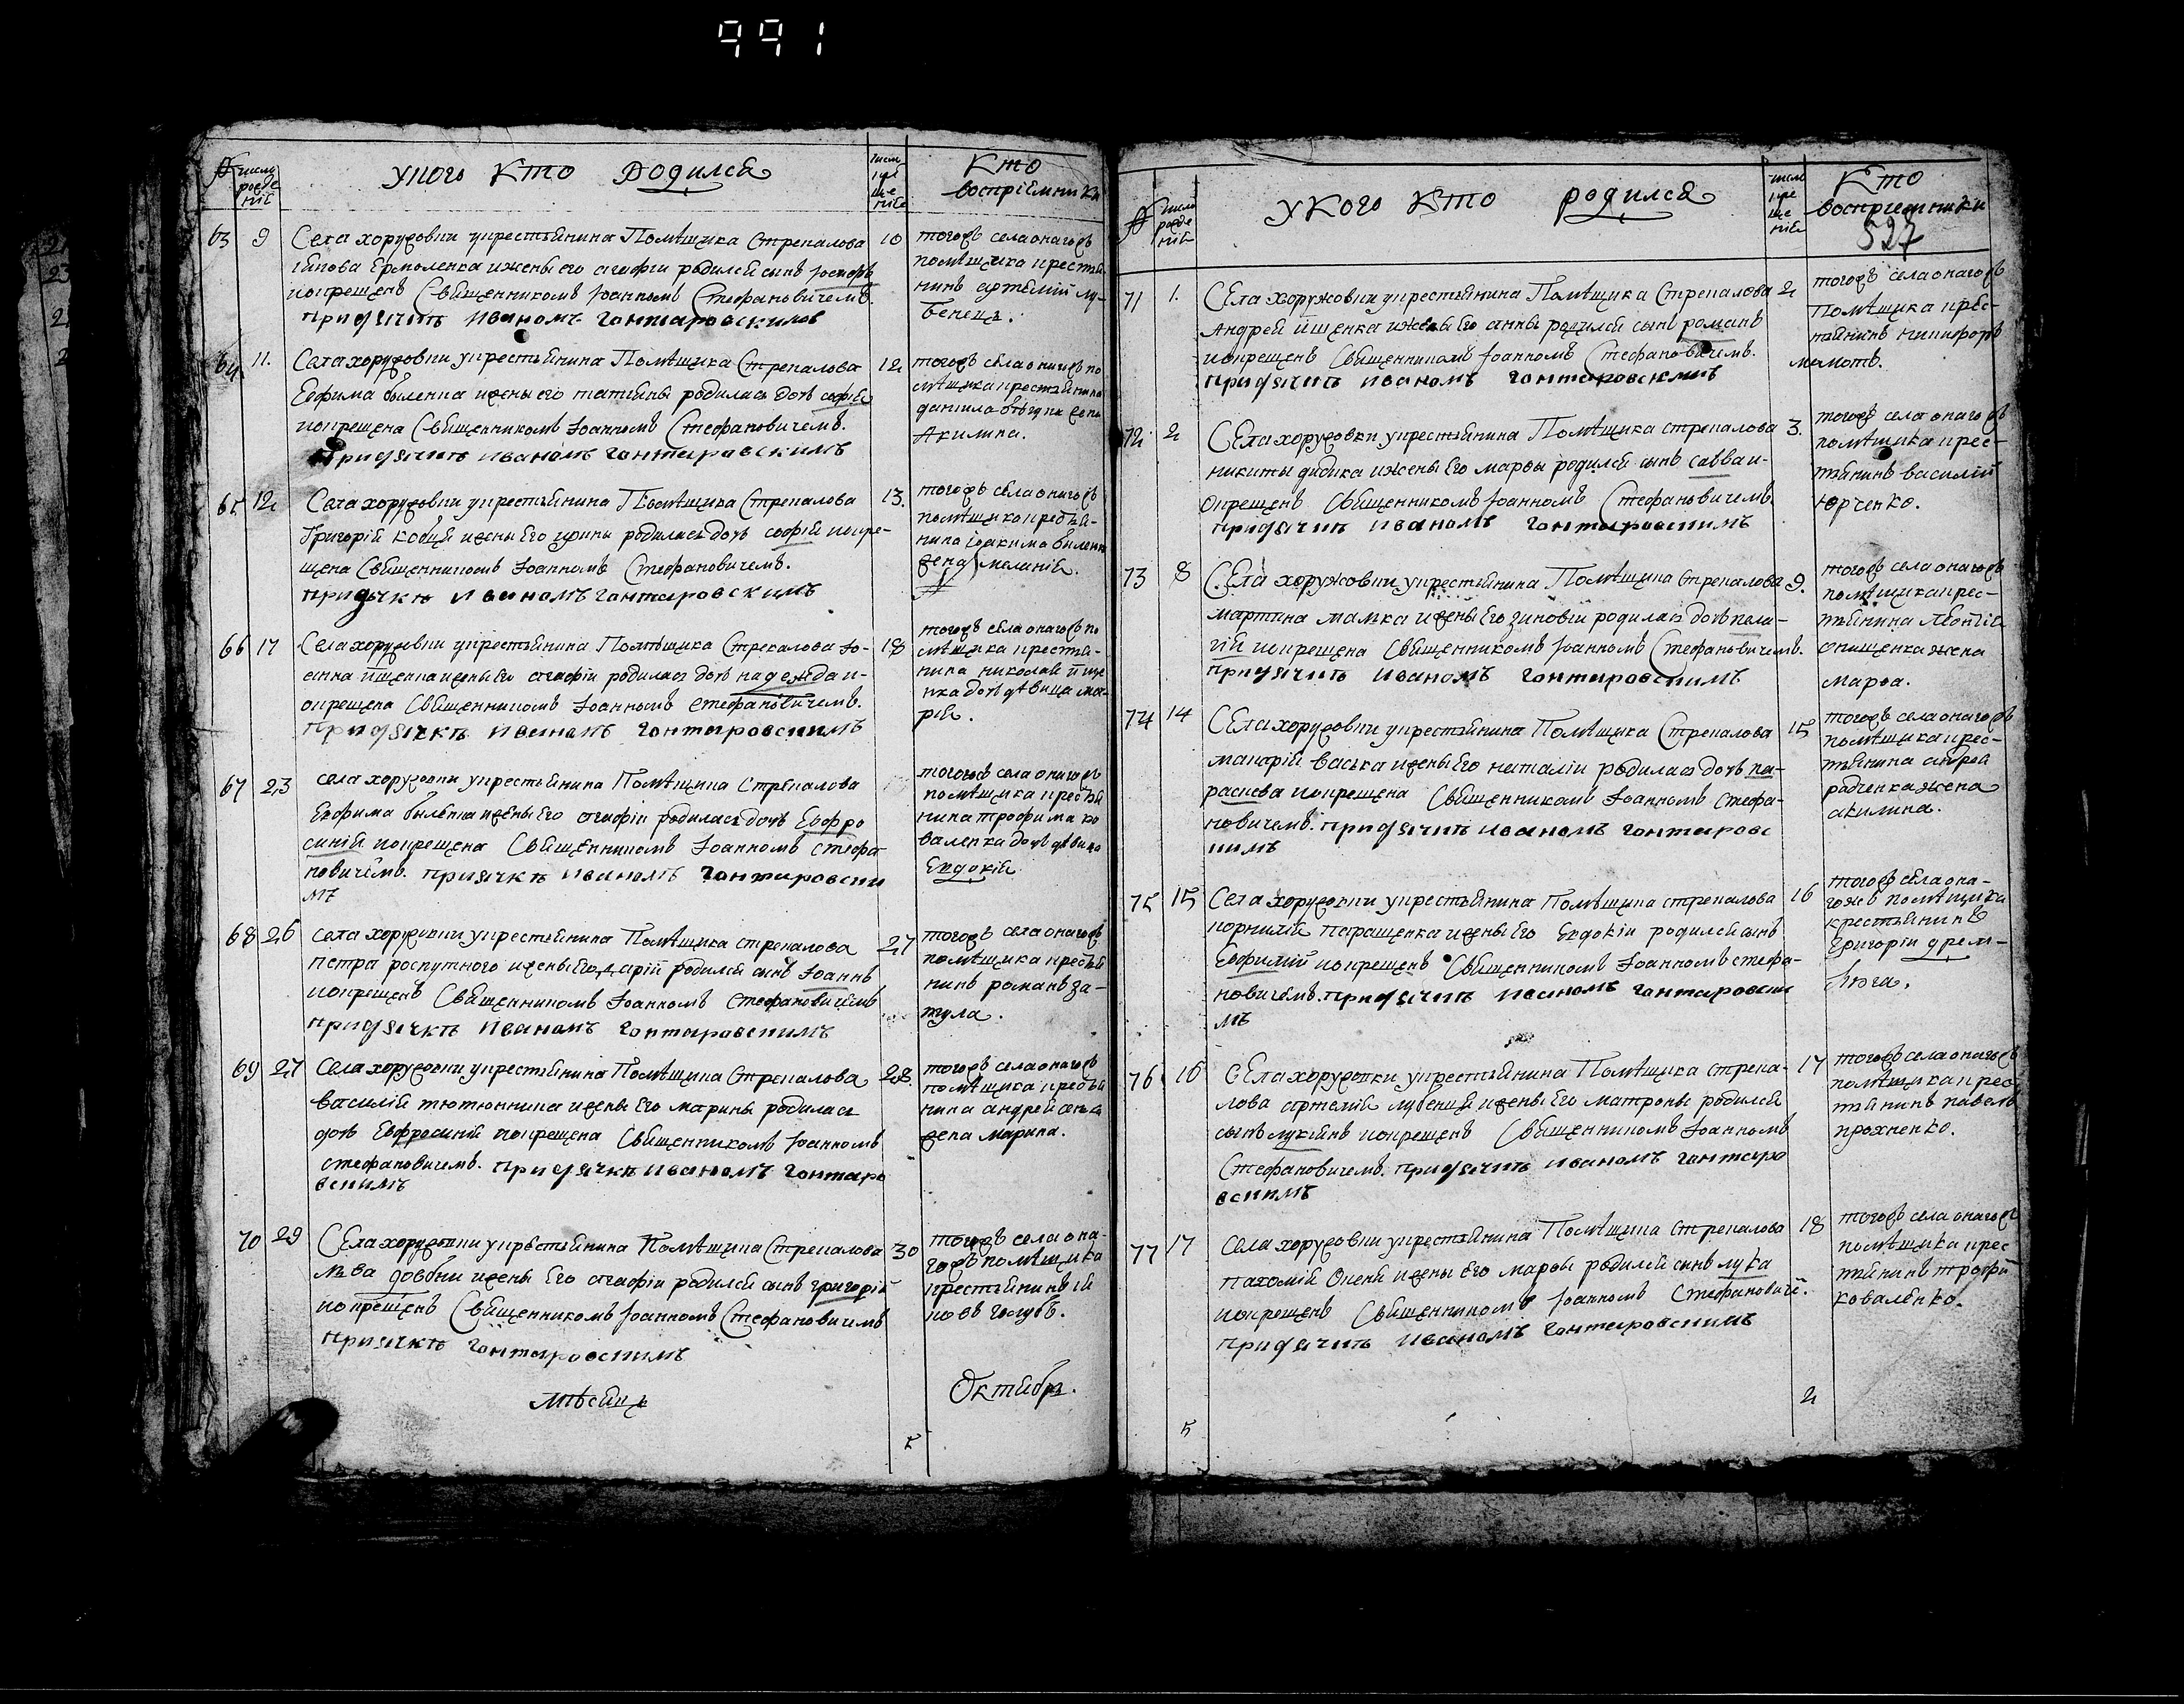 991
У кого кто родился
Кто
восприемники
63 9 Села хоружовки укрестьянина Помѣщика Стрекалова 10
Якова Ермоленка ижены его агафіи родился сынъ Іосифъ
икрещенъ Священникомъ Іоанномъ Стефановичемъ.
придячкѣ иваномъ гонтаровскимъ
тогожъ села онагожъ
помѣщика крестья-
нинъ артемій лу-
бенецъ.
64 11. Села хоружовки укрестьянина Помѣщика Стрекалова 12
Евфима быленка ижены его татьяны родилась дочь софія
икрещена Священникомъ Іоанномъ Стефановичемъ.
придячкѣ иваномъ гонтаровскимъ
тогожъ села онагожъ по
мѣщика крестьянина
данила жена
Акилина.
65 12 Села хоружовки укрестьянина Помѣщика Стрекалова 13.
Григорій ижены Его ирины родилась дочь софія икре-
щена Священникомъ Іоанномъ Стефановичемъ.
придячкѣ иваномъ гонтаровскимъ
тогожъ села онагожъ
помѣщика крестья-
нина іоакима быленка
жена меланія.
66 17 Села хоружовки укрестьянина Помѣщика Стрекалова Іо- 18
анна ищенка ижены Его агафіи родилась дочь надежда и-
окрещена Священникомъ Іоанномъ стефановичемъ.
придячкѣ иваномъ гонтаровскимъ
тогожъ села онагожъ по
мѣщика крестья-
нина николая ище
нка дочь дѣвица ма-
рія.
67 23 села хоружовки укрестьянина Помѣщика Стрекалова
Евфима быленка ижены Его агафіи родилась дочь Евфро
синія икрещена Священникомъ Іоанномъ стефа
новичемъ. придячкѣ иваномъ гонтаровски
мъ
тогожъ села онагожъ
помѣщика крестья
нина трофима ко
валенка дочь дѣвица
Евдокія.
68 26 села хоружовки укрестьянина Помѣщика стрекалова 27
петра роспутного ижены Его дарій родился сынъ Іоаннъ
икрещенъ Священникомъ Іоанномъ стефановичемъ
придячкѣ иваномъ гонтаровскимъ
тогожъ села онагожъ
помѣщика крестья
нинъ романъ за-
тула.
69 27 Села хоружовки укрестьянина Помѣщика Стрекалова 28.
василій тютюнника ижены Его марины родилася
дочь Евфросинія икрещена Священникомъ Іоанномъ
стефановичемъ. придячкѣ иваномъ гонтаро
вскимъ
тогожъ села онагожъ
помѣщика крестья
нина андрей
жена марина.
70 29 Села хоружовки укрестьянина Помѣщика Стрекалова 30
Льва довбни ижены Его агафіи родился сынъ григорій
икрещенъ Священникомъ Іоанномъ Стефановичемъ
придячкѣ гонтаровскимъ
тогожъ села она-
гожъ помѣщика
крестьянинъ Я
ковъ голубъ.
мѣсяцъ Октябрь.
5
У Кого Кто родился
Кто
восприемники
527
71 1. Села хоружовки укрестьянина Помѣщика Стрекалова 2
Андрей ищенка ижены Его анны родился сынъ романъ
икрещенъ Священникомъ Іоанномъ Стефановичемъ.
придячкѣ иваномъ гонтаровскимъ
тогожъ села онагожъ
Помѣщика крес-
тьянинъ никифоръ
мамотъ.
72 2 Села хоружовки укрестьянина Помѣщика стрекалова 3.
никиты дидика ижены Его марфы родился сынъ савва и-
окрещенъ Священникомъ Іоанномъ Стефановичемъ.
придячкѣ иваномъ гонтаровскимъ
тогожъ села онагожъ
помѣщика крес-
тьянинъ василій
Юрченко.
73 8 Села хоружовки укрестьянина Помѣщика Стрекалова 9.
мартина мамка ижены Его зиновіи родилась дочь пела-
гія икрещена Священникомъ Іоанномъ Стефановичемъ.
придячкѣ иваномъ гонтаровскимъ
тогожъ села онагожъ
помѣщика крес-
тьянина Леонтія
онищенка жена
марфа.
74 14 Села хоружовки укрестьянина Помѣщика Стрекалова 15
макарій васька ижены Его наталіи родилась дочь па-
раскева икрещена Священникомъ Іоанномъ стефа-
новичемъ. придячкѣ иваномъ гонтаровс
кимъ
тогожъ села онагожъ
помѣщика крес-
тьянина андрея
радченка жена
акилина.
75 15 Села хоружовки укрестьянина Помѣщика стрекалова 16
корнилій паращенка ижены Его Евдокіи родился сынъ
Евфимій икрещенъ Священникомъ Іоанномъ стефа-
новичемъ. придячкѣ иваномъ гонтаровски
мъ
тогожъ села она-
гожъ помѣщика
крестьянинъ
григорій дрем-
люга.
76 16 Села хоружовки укрестьянина Помѣщика стрека- 17
лова артемій лубенця ижены Его матроны родился
сынъ лукіянъ икрещенъ Священникомъ Іоанномъ
Стефановичемъ. придячкѣ иваномъ гонтаро
вскимъ
тогожъ села онагожъ
помѣщика крес
тьянинъ павелъ
прохненко.
77 17 Села хоружовки укрестьянина Помѣщика Стрекалова 18
пахомій ижены Его марфы родился сынъ лука
икрещенъ Священникомъ Іоанномъ Стефанович.
придячкѣ иваномъ гонтаровскимъ
тогожъ села онагожъ
помѣщика крес
тьянинъ трофи
коваленко.
5 2